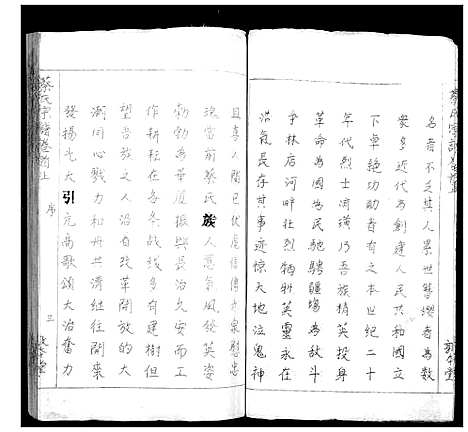 蔡氏宗譜卷首上
名者不乏其人累世簪纓者為數
衆多近代為創建人民共和國立
下卓絶功勛者在本世紀二十
年代烈士濟橫乃吾族精英投身
革命為國為民馳騁疆場為敵斗
争林后河畔壯烈犧牲英靈永在
浩氣長存其事迹惊天地泣鬼神
且喜人間已伏虎信傳烈慰忠
魂當前蔡氏族人意氣風發英姿
勃勃為華廈振興長治久安而工
作耕耘在各条战线多有建樹但
望吾族之人沿有改革開放的大
潮同心戮力和舟共濟继往開來
發揚光大引亢高歌頌大治奮力
蔡氏宗譜卷首上
序
三